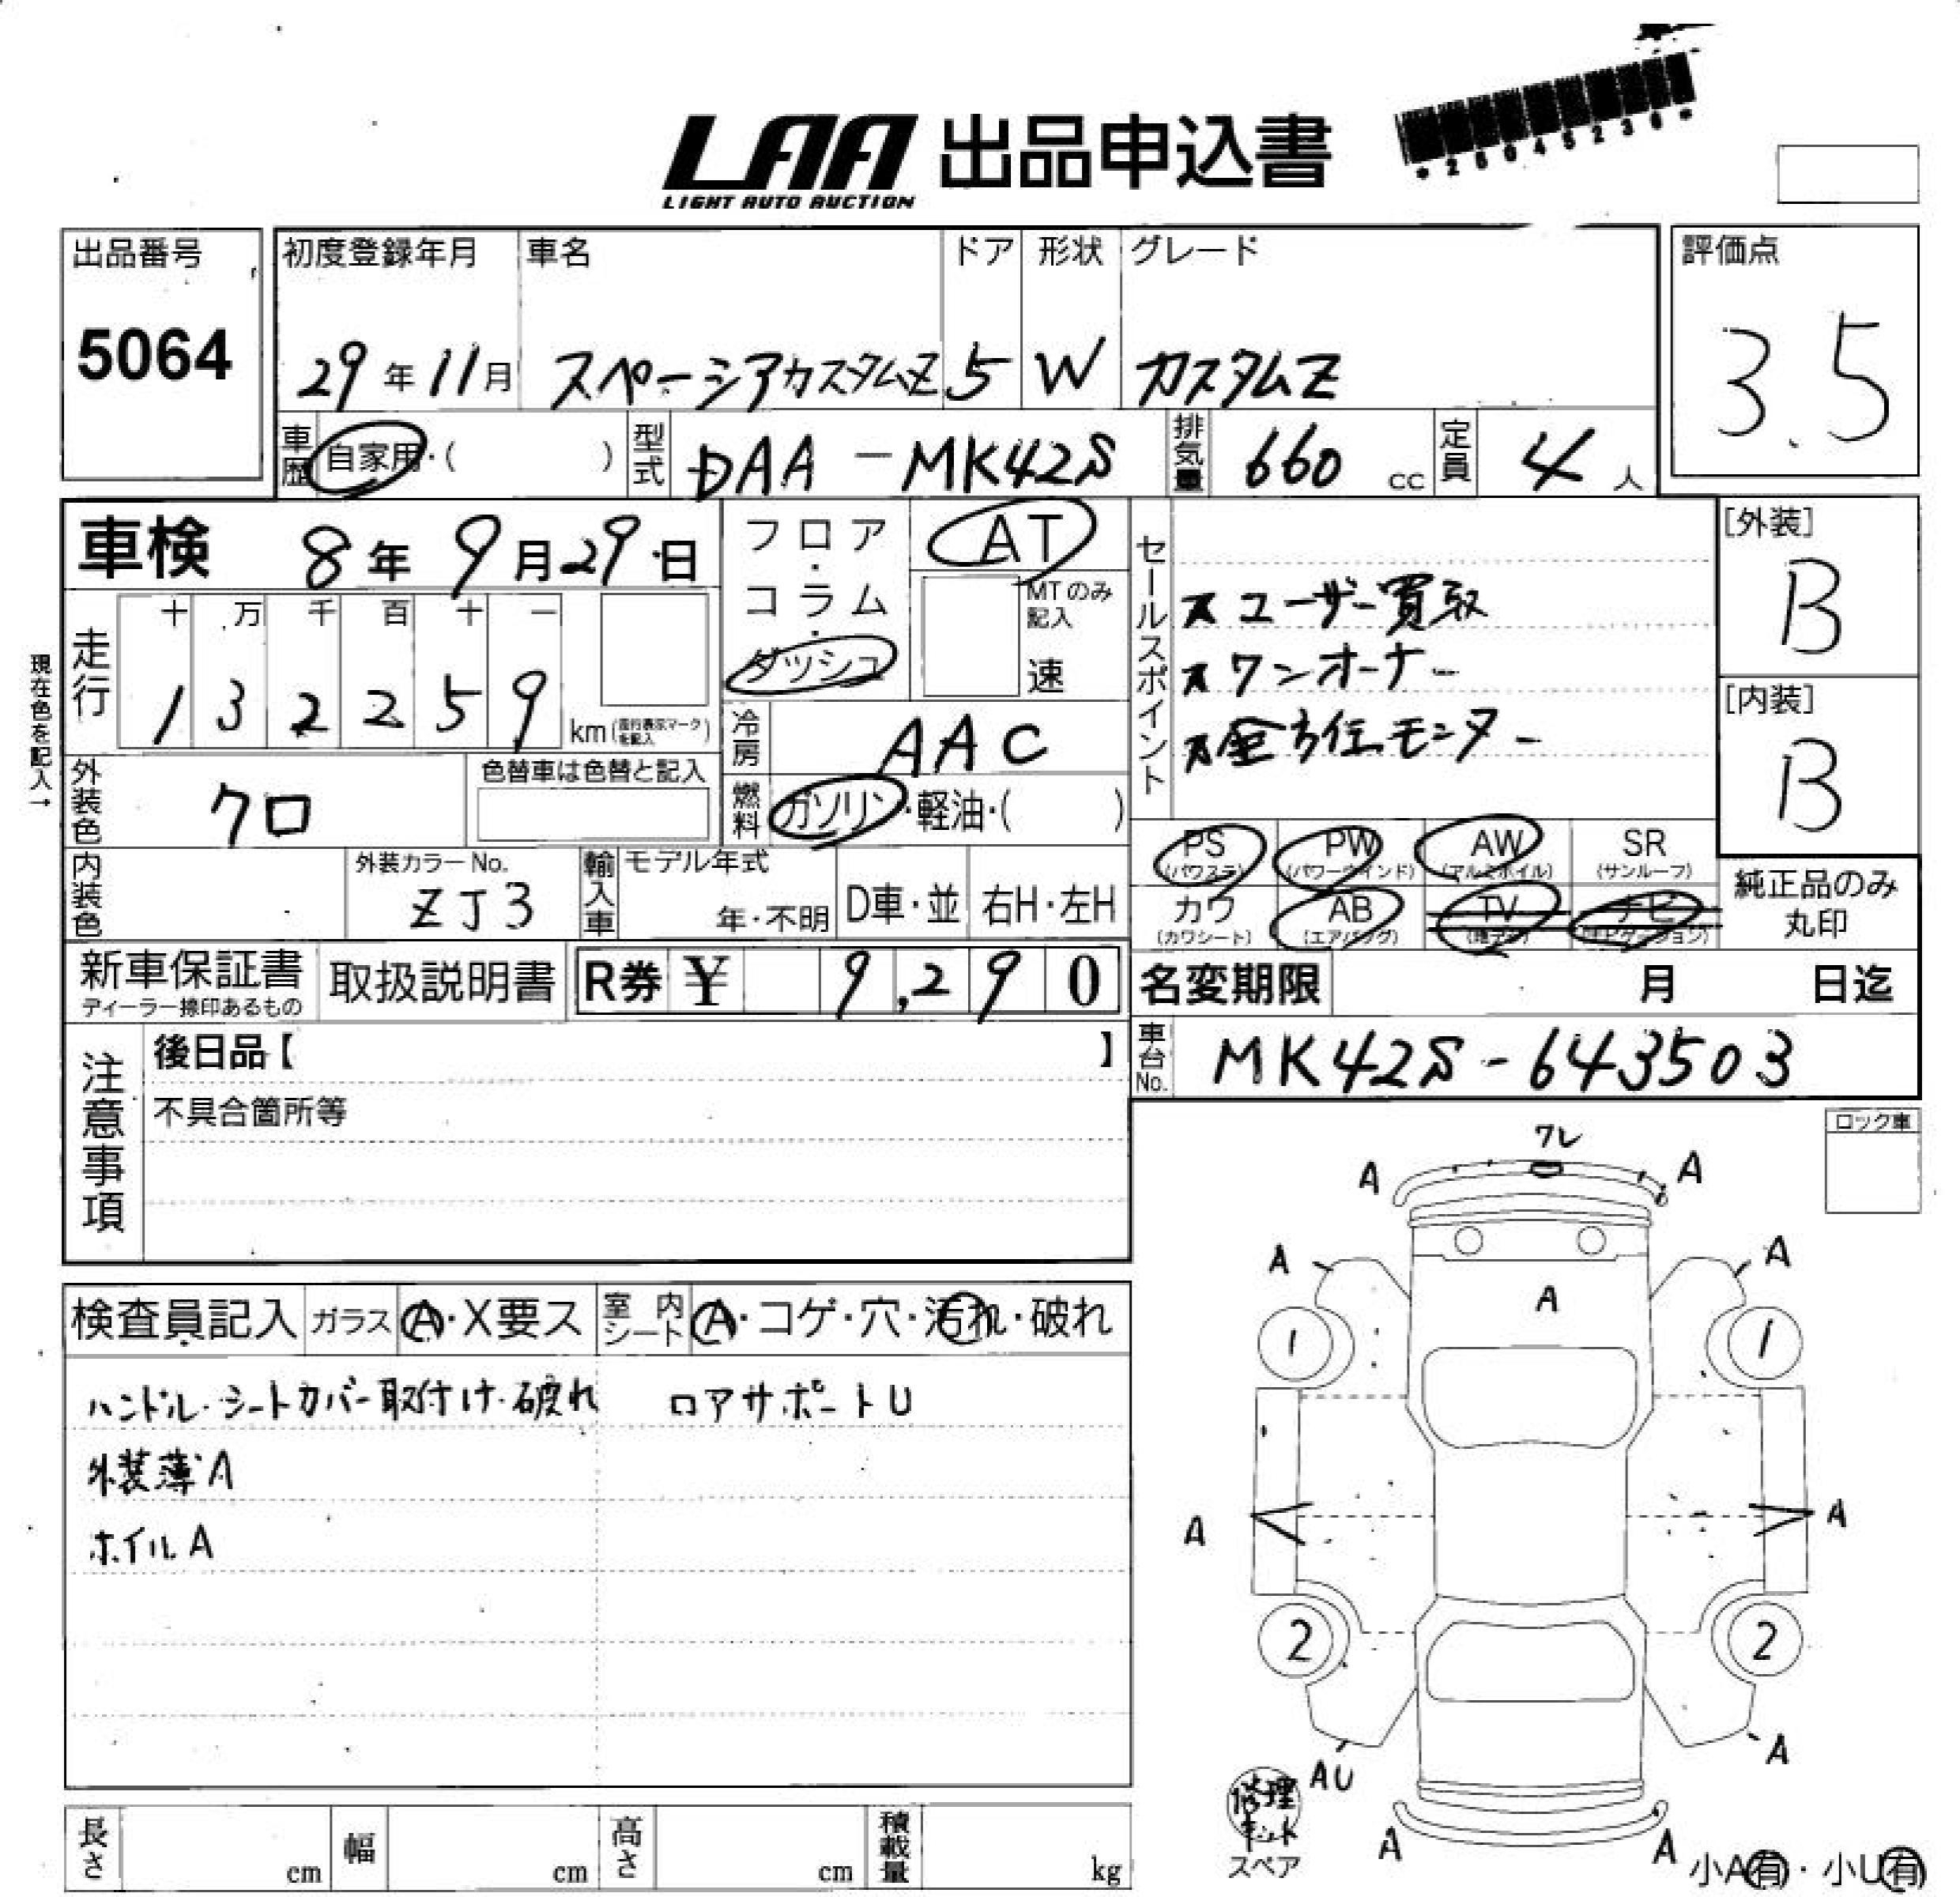 LAA 出品申込書
LIGHT AUTO AUCTION
*26045230*
出品番号
5064
初度登録年月 車名 ドア 形状 グレード
29年11月 スペーシアカスタムZ 5 W カスタムZ
評価点
3.5
車歴 自家用・( ) 型式 DAA-MK42S 排気量 660 cc 定員 4 人
車検 8年9月29日
フロア・コラム・ダッシュ
AT
MTのみ記入
速
セールスポイント
ユーザー買取
ワンオーナー
全方位モニター
[外装]
B
[内装]
B
現在色を記入→
走行
十 万 千 百 十 一
1 3 2 2 5 9 km (走行表示マークを記入)
冷房 AAC
外装色 クロ
色替車は色替と記入
燃料 ガソリン・軽油・( )
PS (パワステ) PW (パワーウインド) AW (アルミホイル) SR (サンルーフ)
カワ (カワシート) AB (エアバッグ) TV (地デジ) ナビ (ナビゲーション)
純正品のみ丸印
内装色
外装カラーNo.
ZJ3
輸入車 モデル年式
年・不明 D車・並 右H・左H
新車保証書
ディーラー捺印あるもの
取扱説明書
R券 ¥ 9,290
名変期限 月 日迄
車台No. MK42S-643503
注意事項
後日品【 】
不具合箇所等
ロック車
ワレ
A A
A A
A
1 1
A A
2 2
AU A
A A
修理キット
スペア
小A有・小U有
検査員記入 ガラス A・X要ス 室内シート A・コゲ・穴・汚れ・破れ
ハンドル・シートカバー取付け・破れ ロアサポートU
外装薄A
ホイルA
長さ cm 幅 cm 高さ cm 積載量 kg